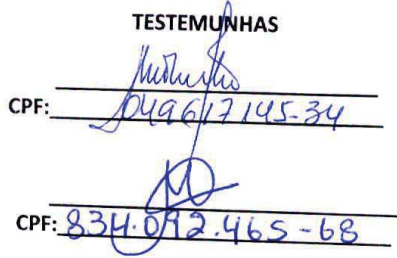 TESTEMUNHAS
CPF: 049617145-34
CPF: 834.092.465-68